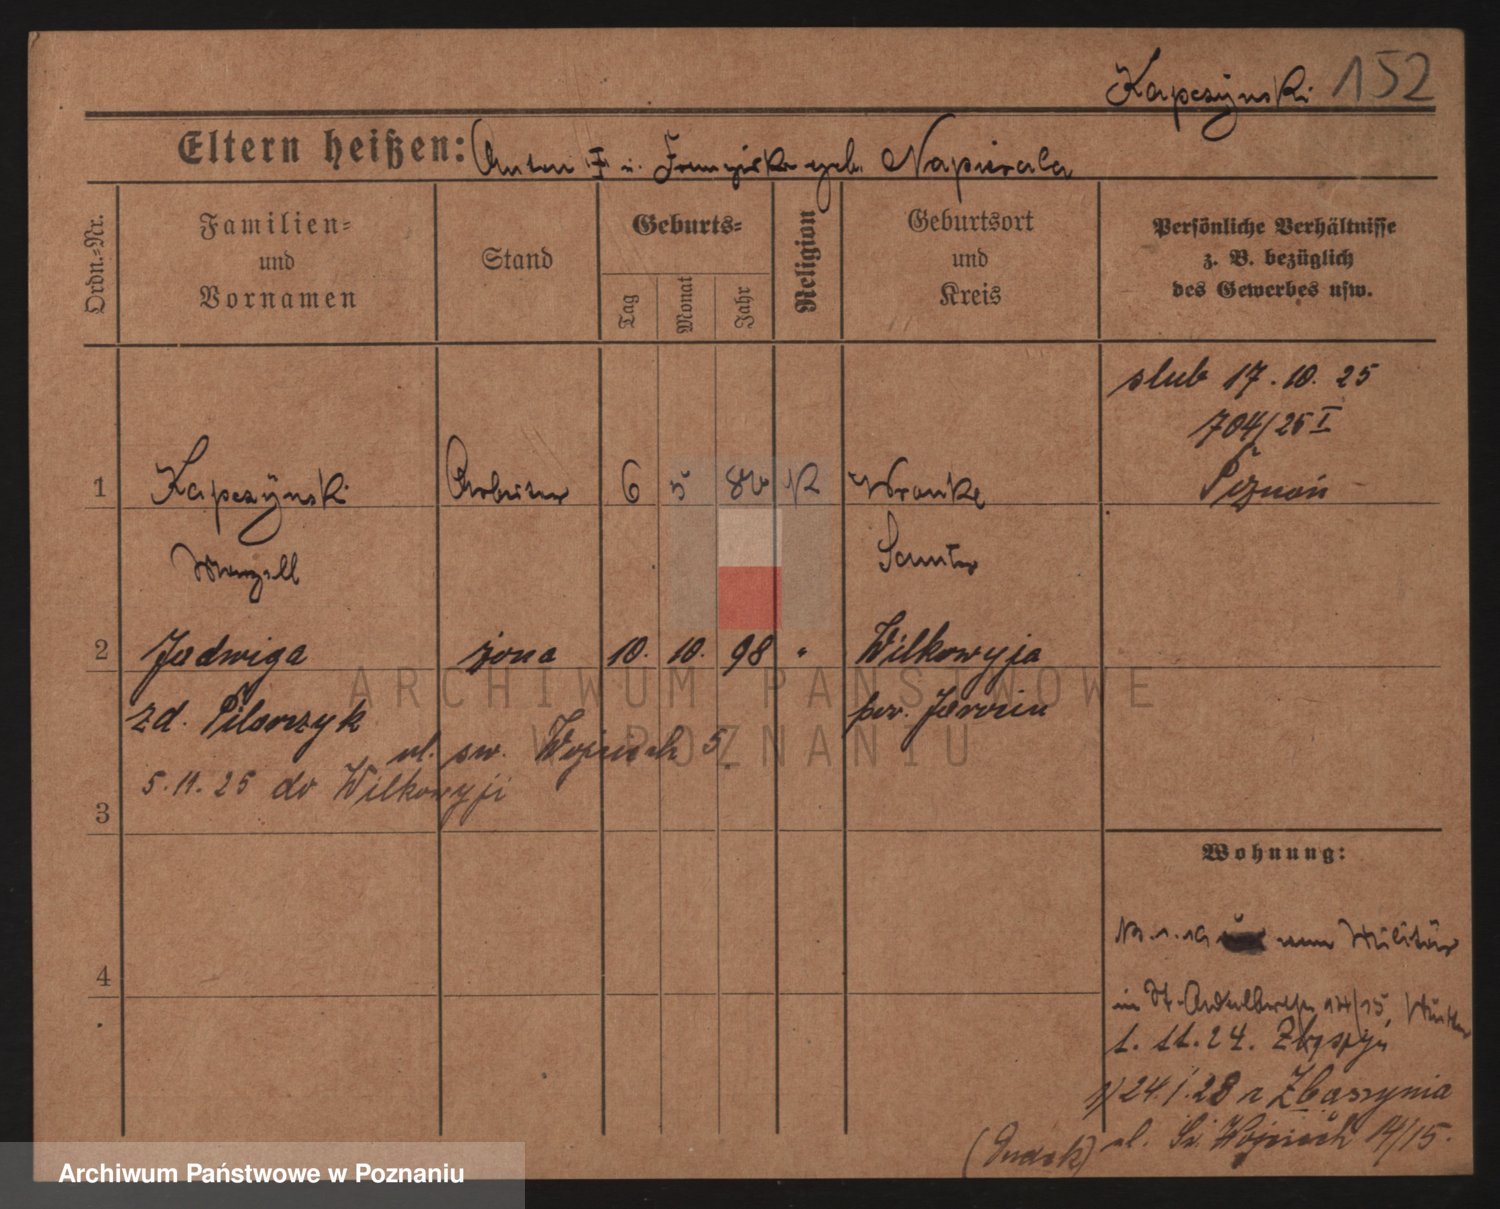 Kapczyński 152
Eltern heißen: Anton I u. Franziska geb. Napierala
Ordn.-Nr.
Familien-
und
Vornamen
Stand
Geburts-
Tag
Monat
Jahr
Religion
Geburtsort
und
Kreis
Persönliche Verhältnisse
z. B. bezüglich
des Gewerbes usw.
slub 17. 10. 25
704/25 I
Poznań
1 Kapczyński Arbeiter 6 5 K Wronke
Wenzell Samter
2 Jadwiga żona 10. 10. 98 " Wilkowyja
zd. Pilarczyk pow. Jarocin
ul. sw. Wojciech 5.
5. 11. 25 do Wilkowyji
3
Wohnung:
vom Militär
in St. Adalbertstr. 14/15, Mutter
4
1. 11. 24. Zbąszyń
24. 1. 28 z Zbaszynia
ul. Św. Wojciech 14/15.
ARCHIWUM PAŃSTWOWE
W POZNANIU
Archiwum Państwowe w Poznaniu